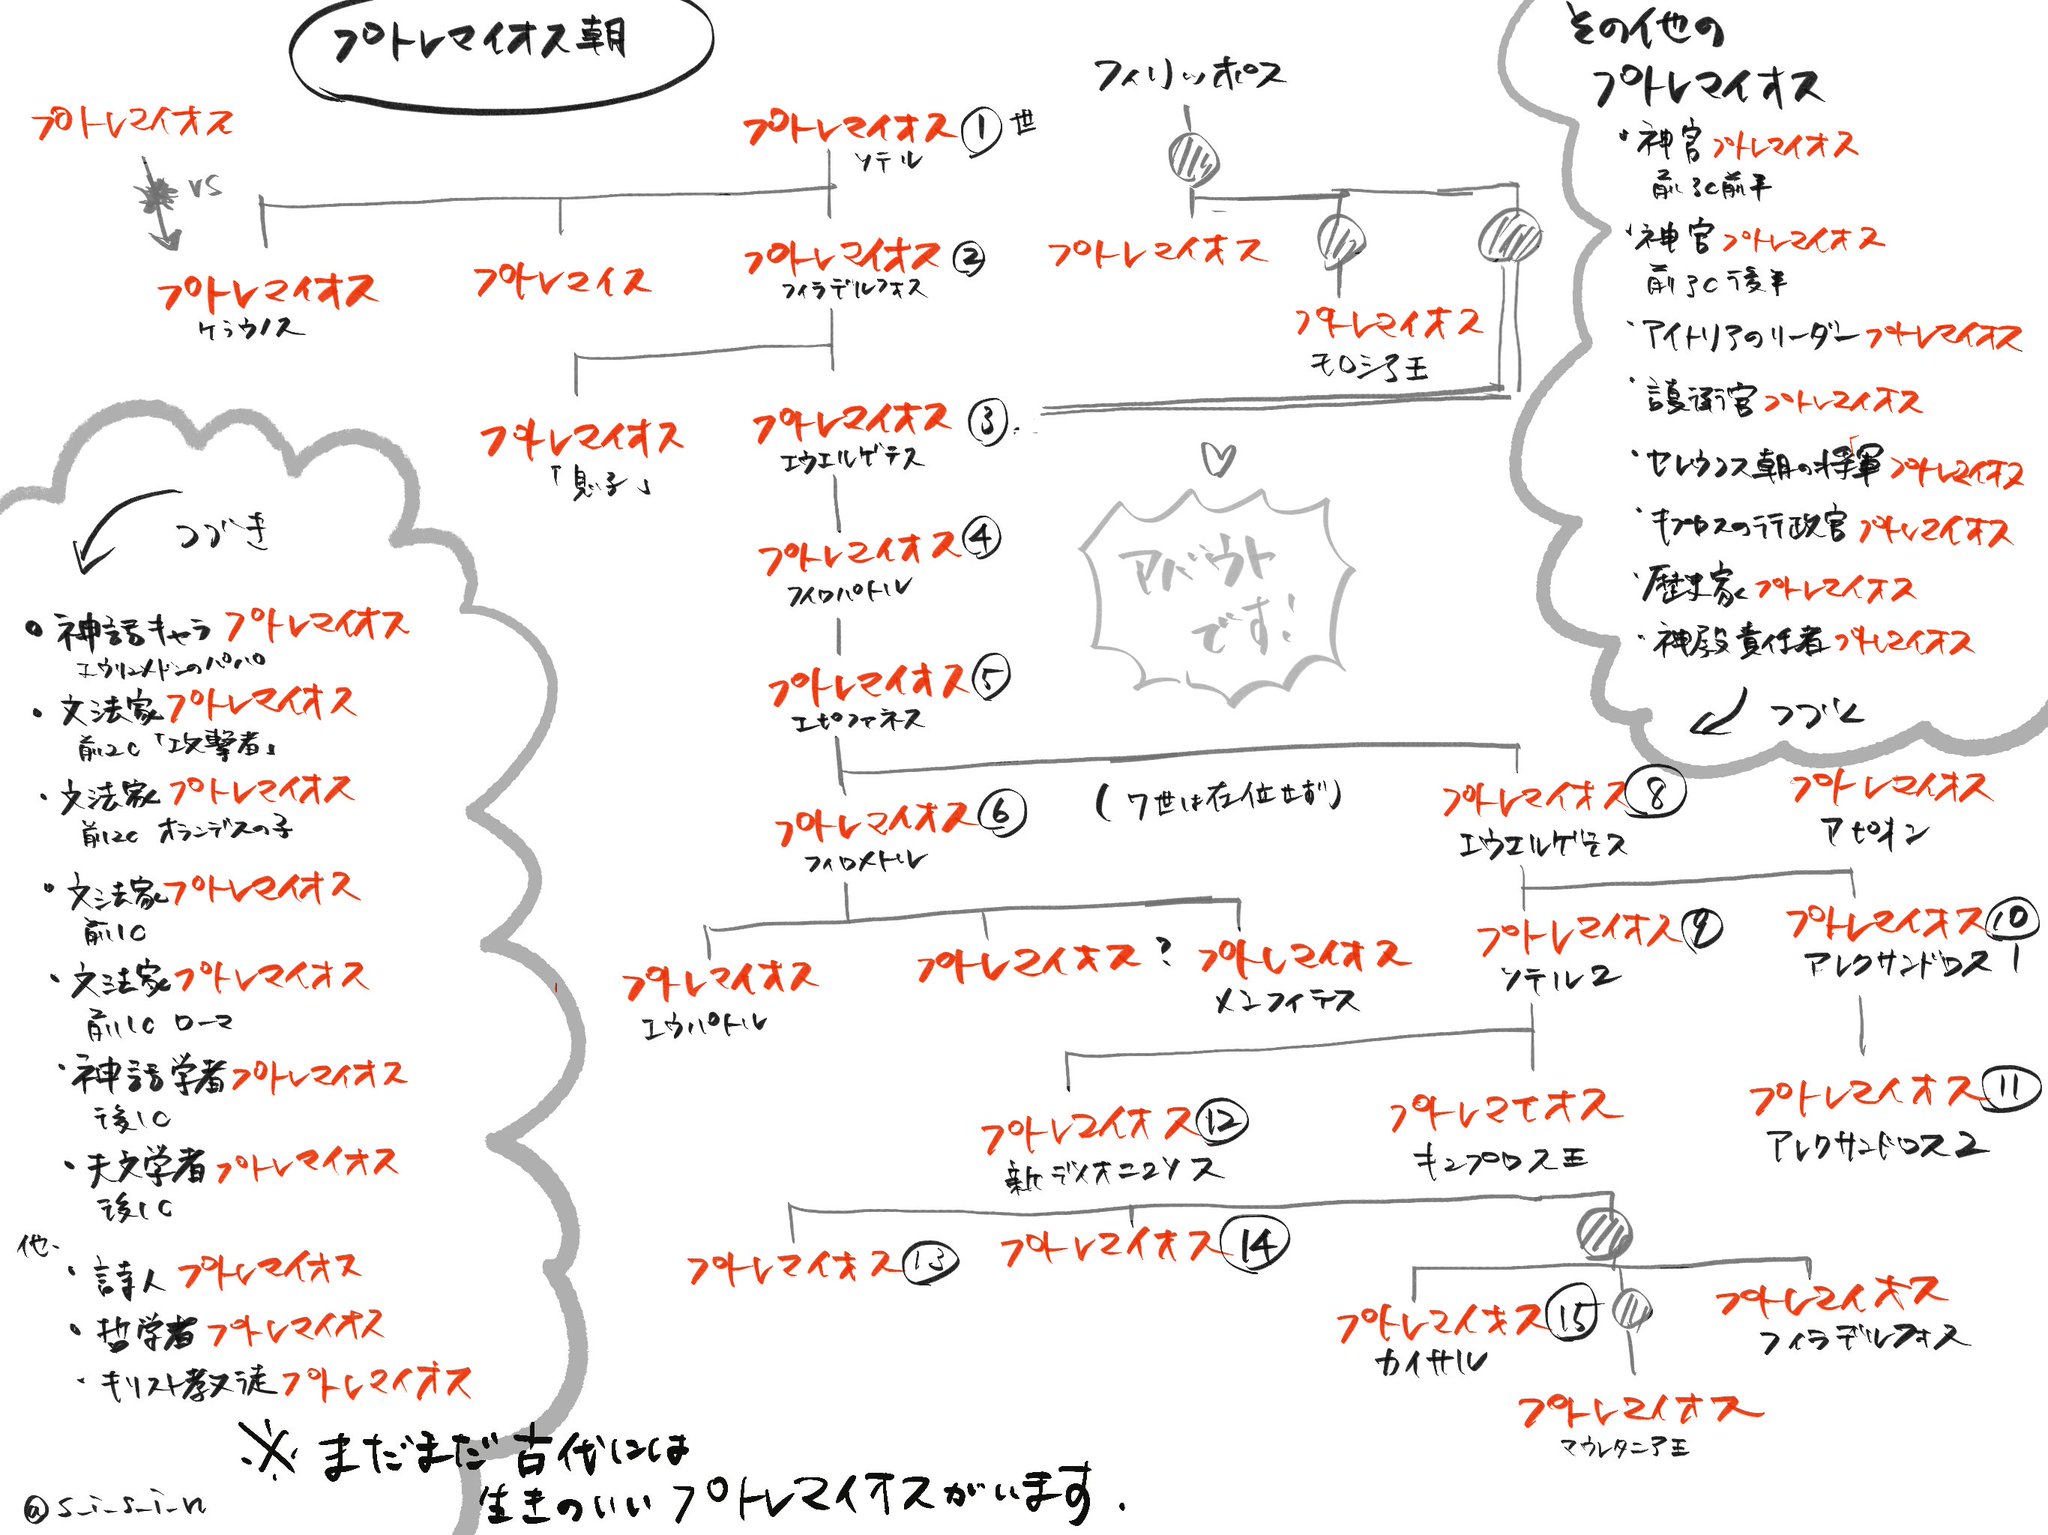 プトレマイオス朝
プトレマイオス
vs
プトレマイオス①世
ソテル
フィリッポス
プトレマイオス
ケラウノス
プトレマイス
プトレマイオス②
フィラデルフォス
プトレマイオス
プトレマイオス
モロシア王
プトレマイオス
「息子」
プトレマイオス③
エウエルゲテス
プトレマイオス④
フィロパトル
アバウト
です!
プトレマイオス⑤
エピファネス
プトレマイオス⑥
フィロメトル
(7世は在位せず)
プトレマイオス⑧
エウエルゲテス
プトレマイオス
アピオン
プトレマイオス
エウパトル
プトレマイオス?
プトレマイオス
メンフィテス
プトレマイオス⑨
ソテル2
プトレマイオス⑩
アレクサンドロス1
プトレマイオス⑫
新ディオニュソス
プトレマイオス
キュプロス王
プトレマイオス⑪
アレクサンドロス2
プトレマイオス⑬
プトレマイオス⑭
プトレマイオス⑮
カイサル
プトレマイオス
フィラデルフォス
プトレマイオス
マウレタニア王
その他の
プトレマイオス
・神官プトレマイオス
前3C前半
・神官プトレマイオス
前3C後半
・アイトリアのリーダープトレマイオス
・護衛官プトレマイオス
・セレウコス朝の将軍プトレマイオス
・キプロスの行政官プトレマイオス
・歴史家プトレマイオス
・神殿責任者プトレマイオス
つづく
つづき
・神話キャラプトレマイオス
エウリュメドンのパパ
・文法家プトレマイオス
前2C「攻撃者」
・文法家プトレマイオス
前2C オランデスの子
・文法家プトレマイオス
前1C
・文法家プトレマイオス
前1C ローマ
・神話学者プトレマイオス
後1C
・天文学者プトレマイオス
後1C
他・
・詩人プトレマイオス
・哲学者プトレマイオス
・キリスト教徒プトレマイオス
※まだまだ古代には
生きのいいプトレマイオスがいます.
@s_i_s_i_n